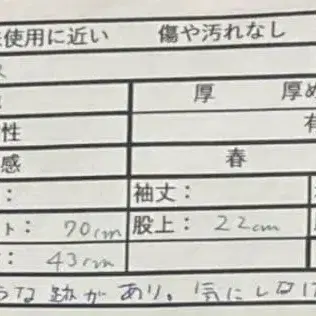 使用に近い 傷や汚れなし
厚 厚め
性 有
感 春
： 袖丈：
ト： 70cm 股上： 22cm
： 43cm
うな跡があり。気にしなけ